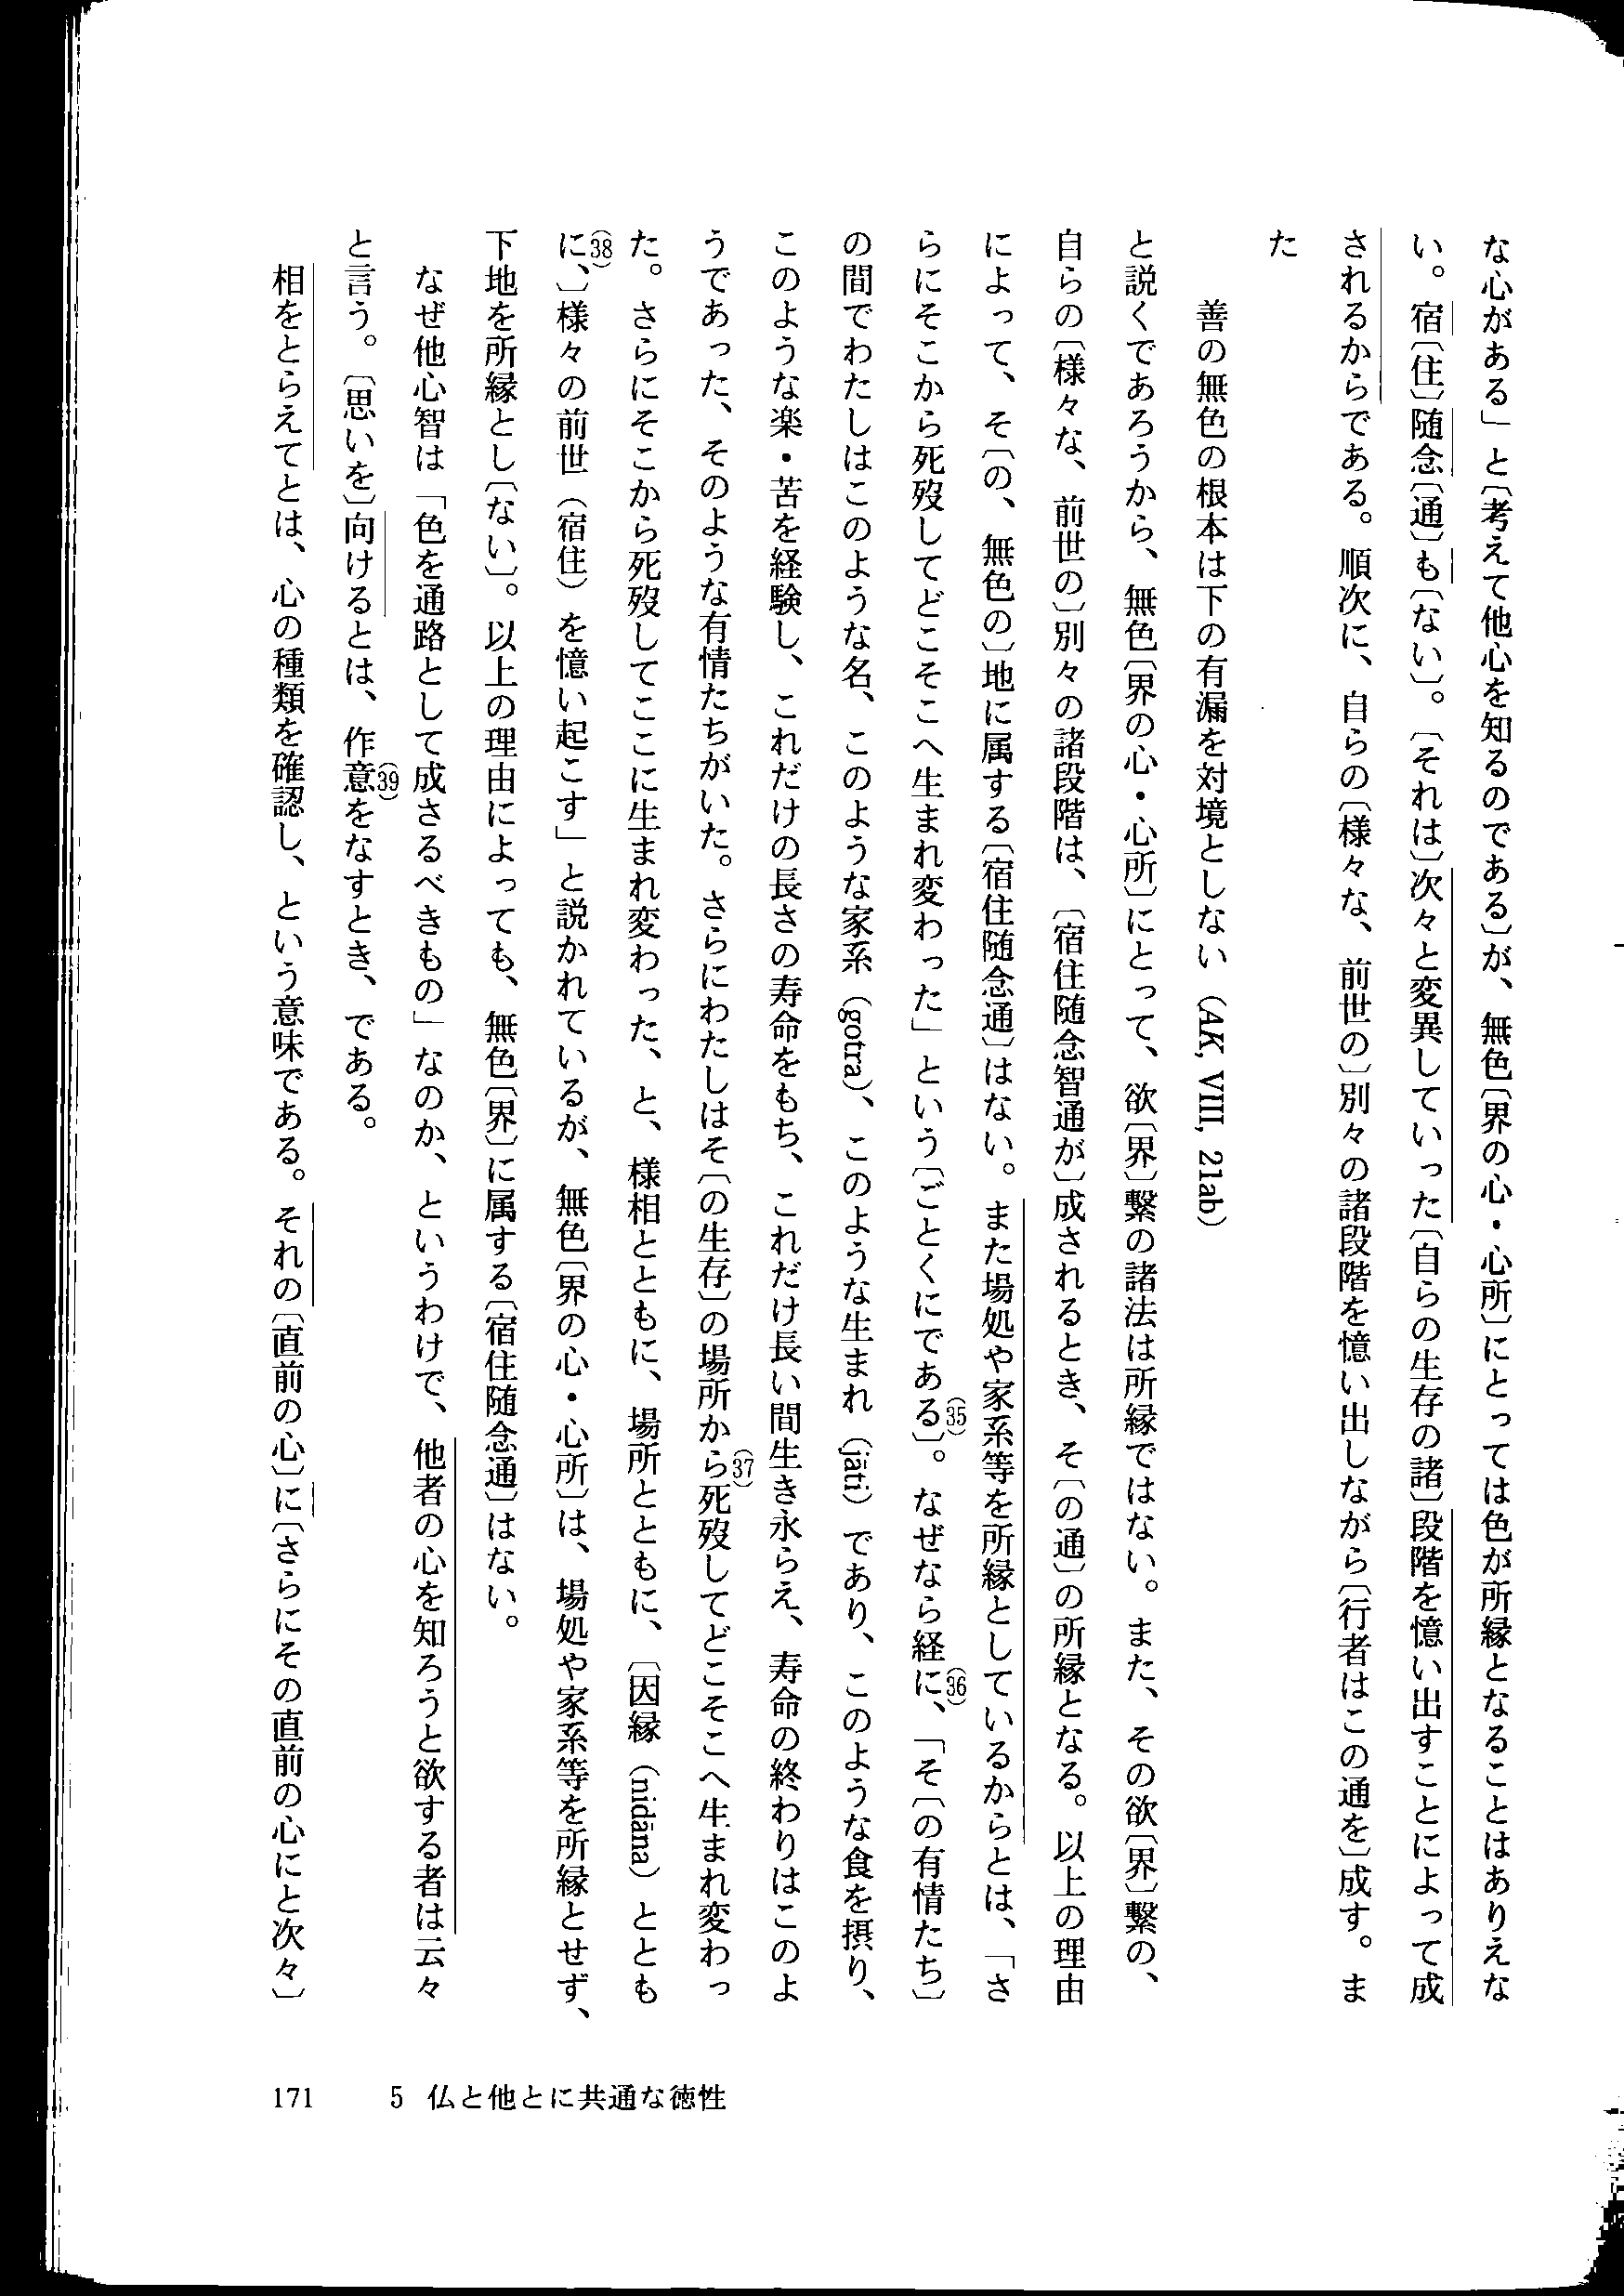 な心がある」と〔考えて他心を知るのである〕が、無色〔界の心・心所〕にとっては色が所縁となることはありえな
い。宿〔住〕随念〔通〕も〔ない〕。〔それは〕次々と変異していった〔自らの生存の諸〕段階を憶い出すことによって成
されるからである。順次に、自らの〔様々な、前世の〕別々の諸段階を憶い出しながら〔行者はこの通を〕成す。ま
た
善の無色の根本は下の有漏を対境としない（AK, VIII, 21ab）
と説くであろうから、無色〔界の心・心所〕にとって、欲〔界〕繋の諸法は所縁ではない。また、その欲〔界〕繋の、
自らの〔様々な、前世の〕別々の諸段階は、〔宿住随念智通が〕成されるとき、そ〔の通〕の所縁となる。以上の理由
によって、そ〔の、無色の〕地に属する〔宿住随念通〕はない。また場処や家系等を所縁としているからとは、「さ
らにそこから死歿してどこそこへ生まれ変わった」という〔ごとくにである〕(35)。なぜなら経に(36)、「そ〔の有情たち〕
の間でわたしはこのような名、このような家系（gotra）、このような生まれ（jāti）であり、このような食を摂り、
このような楽・苦を経験し、これだけの長さの寿命をもち、これだけ長い間生き永らえ、寿命の終わりはこのよ
うであった、そのような有情たちがいた。さらにわたしはそ〔の生存〕の場所から(37)死歿してどこそこへ生まれ変わっ
た。さらにそこから死歿してここに生まれ変わった、と、様相とともに、場所とともに、〔因縁（nidāna）ととも
に(38)、〕様々の前世（宿住）を憶い起こす」と説かれているが、無色〔界の心・心所〕は、場処や家系等を所縁とせず、
下地を所縁とし〔ない〕。以上の理由によっても、無色〔界〕に属する〔宿住随念通〕はない。
なぜ他心智は「色を通路として成さるべきもの」なのか、というわけで、他者の心を知ろうと欲する者は云々
と言う。〔思いを〕向けるとは、作意(39)をなすとき、である。
相をとらえてとは、心の種類を確認し、という意味である。それの〔直前の心〕に〔さらにその直前の心にと次々〕
171　5　仏と他とに共通な徳性